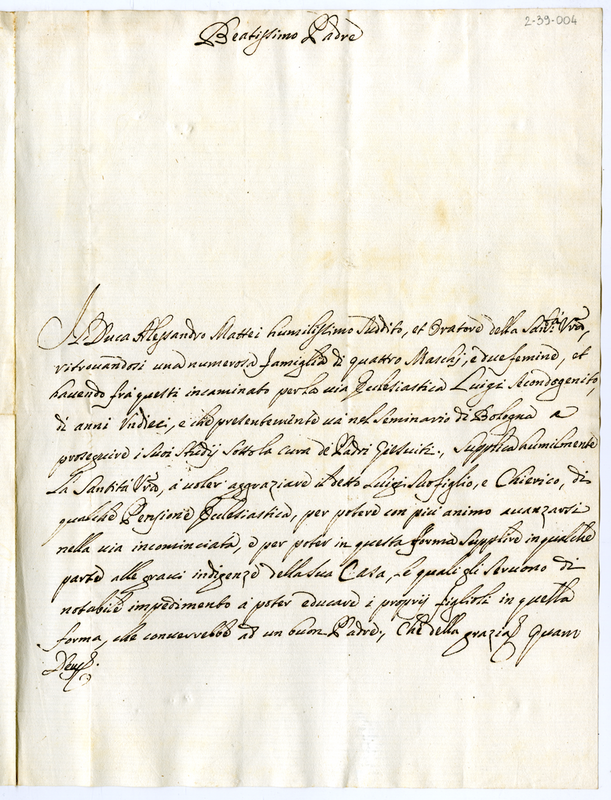 2-39-004
Beatissimo Padre
Il Duca Alessandro Mattei humilissimo Suddito, et Oratore della Santà Vrã,
ritrovandosi una numerosa famiglia di quattro Maschj, e due femine, et
havendo frà questi incaminato per la via Ecclesiastica Luigi Secondogenito
di anni Undeci, e che presentemente va nel Seminario di Bologna a
proseguire i suoi Studij sotto la cura de Padri Giesuiti, supplica humilmente
la Santità Vrã, à voler aggraziare il detto Luigi suo figlio, e Chierico, di
qualche Pensione Ecclesiastica, per potere con più animo avanzarsi
nella via incominciata, e per poter in questa forma supplire in qualche
parte alle gravi indigenze della sua Casa, le quali gli servono di
notabile impedimento a poter educare i proprij figlioli in quella
forma, che converrebbe ad un buon Padre, Che della grazia Quam
Deus